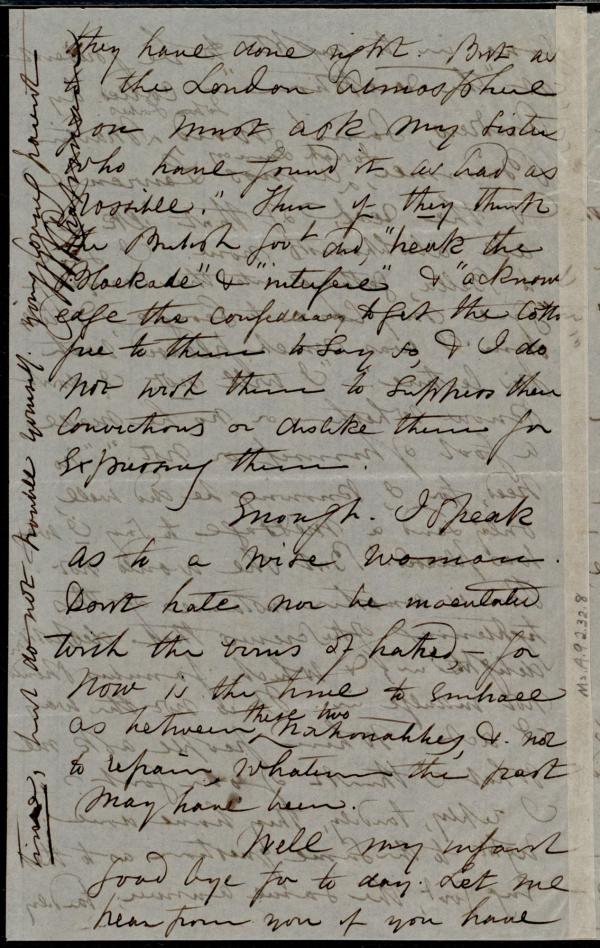 they have done right. But as
to the London Atmosphere
you must ask my Sister
who have found it as bad as
possible." Then if they think
the British Gov't did, "break the
Blockade" & "interfere" & "acknow
edge the confederacy to get the Cotto
free to them to say so, & I do
not wish them to suppress their
Convictions or dislike them for
Expressing them.
Enough. I speak
as to a wise woman.
Dont hate nor be inoculated
with the virus of hatred, – for
Now is the time to Embrace
these two
as between Nationalities, & not
to repair, whatever the past
may have been.
Well my infant
good bye for to day. Let me
hear from you if you have
time, but do not trouble yourself. your loving parent
Ms. A.9.2.32.8